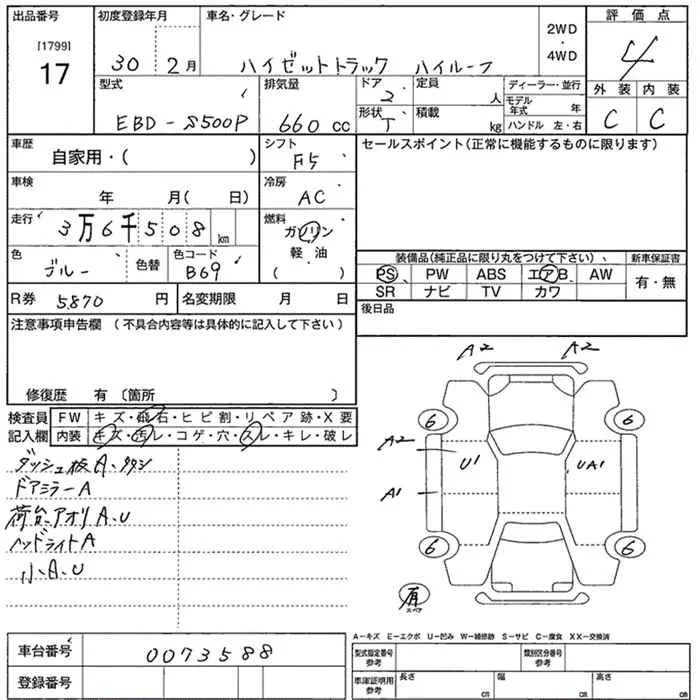 出品番号
[1799]
17
初度登録年月
30 2月
車名・グレード
ハイゼットトラック ハイルーフ
2WD
・
4WD
評価点
4
外装 内装
C C
型式
EBD-S500P
排気量
660 cc
ドア
2
形状
T
定員
人
積載
kg
ディーラー・並行
モデル年式 年
ハンドル 左・右
車歴
自家用・( )
シフト
F5
車検
年 月( 日)
冷房
AC
走行
3万6千508 km
燃料
ガソリン
軽・油
( )
色
ブルー
色替
色コード
B69
R券 5,870 円
名変期限 月 日
セールスポイント(正常に機能するものに限ります)
装備品(純正品に限り丸をつけて下さい)
新車保証書
PS PW ABS エアB AW
SR ナビ TV カワ
有・無
後日品
注意事項申告欄 (不具合内容等は具体的に記入して下さい)
修復歴 有 〔箇所 〕
検査員記入欄
FW キズ・飛石・ヒビ割・リペア跡・X要
内装 キズ・汚レ・コゲ・穴・スレ・キレ・破レ
ダッシュ板A、
ドアミラーA
荷台、アオリA、U
ヘッドライトA
小A、U
A2 A2
6 6
A2
U1 UA1
A1
6 6
有
スペア
車台番号 0073588
登録番号
A-キズ E-エクボ U-凹み W-補修跡 S-サビ C-腐食 XX-交換済
型式指定番号
参考
類別区分番号
参考
車庫証明用
参考
長さ cm
幅 cm
高さ cm